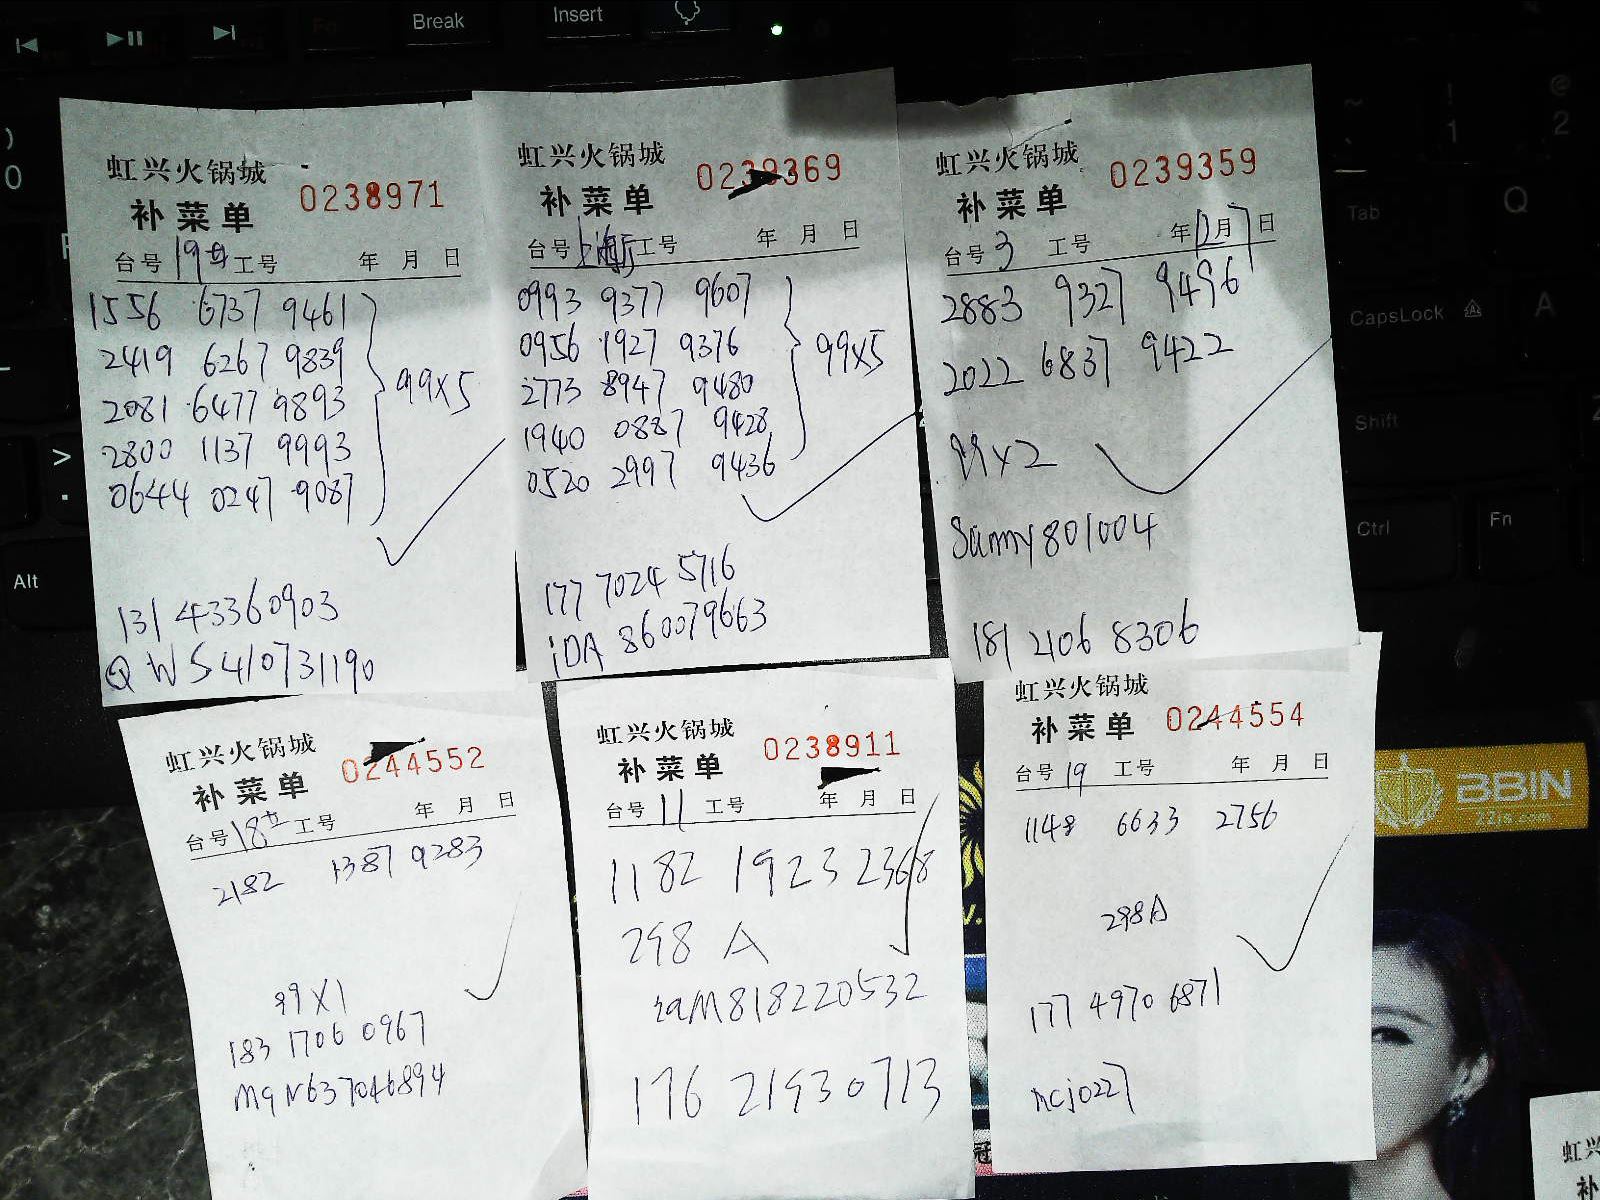 Break
Insert
虹兴火锅城
0238971
补菜单
台号 19 工号 年 月 日
1556 6737 9461
2419 6267 9839
2081 6477 9893
2800 1137 9993
0644 0247 9087
99×5
131 43360903
QWS410731190
虹兴火锅城
0239369
补菜单
台号 上海厅 工号 年 月 日
0993 9377 9607
0956 1927 9376
2773 8947 9480
1940 0887 9428
0520 2997 9436
99×5
177 7024 5716
iDA 860079663
虹兴火锅城
0239359
补菜单
台号 3 工号 年 12月7日
2883 9327 9496
2022 6837 9422
99×2
Sunny801004
181 2106 8306
虹兴火锅城
0244552
补菜单
台号 18 工号 年 月 日
2182 1387 9283
99×1
183 1706 0967
MqN637046894
虹兴火锅城
0238911
补菜单
台号 11 工号 年 月 日
1182 1923 2368
298 A
zaM818220532
176 21930713
虹兴火锅城
0244554
补菜单
台号 19 工号 年 月 日
1148 6633 2756
298A
177 4970 6871
ncj0227
BBIN
Tab
Q
CapsLock
A
Shift
Ctrl
Fn
Alt
虹兴
补
冠